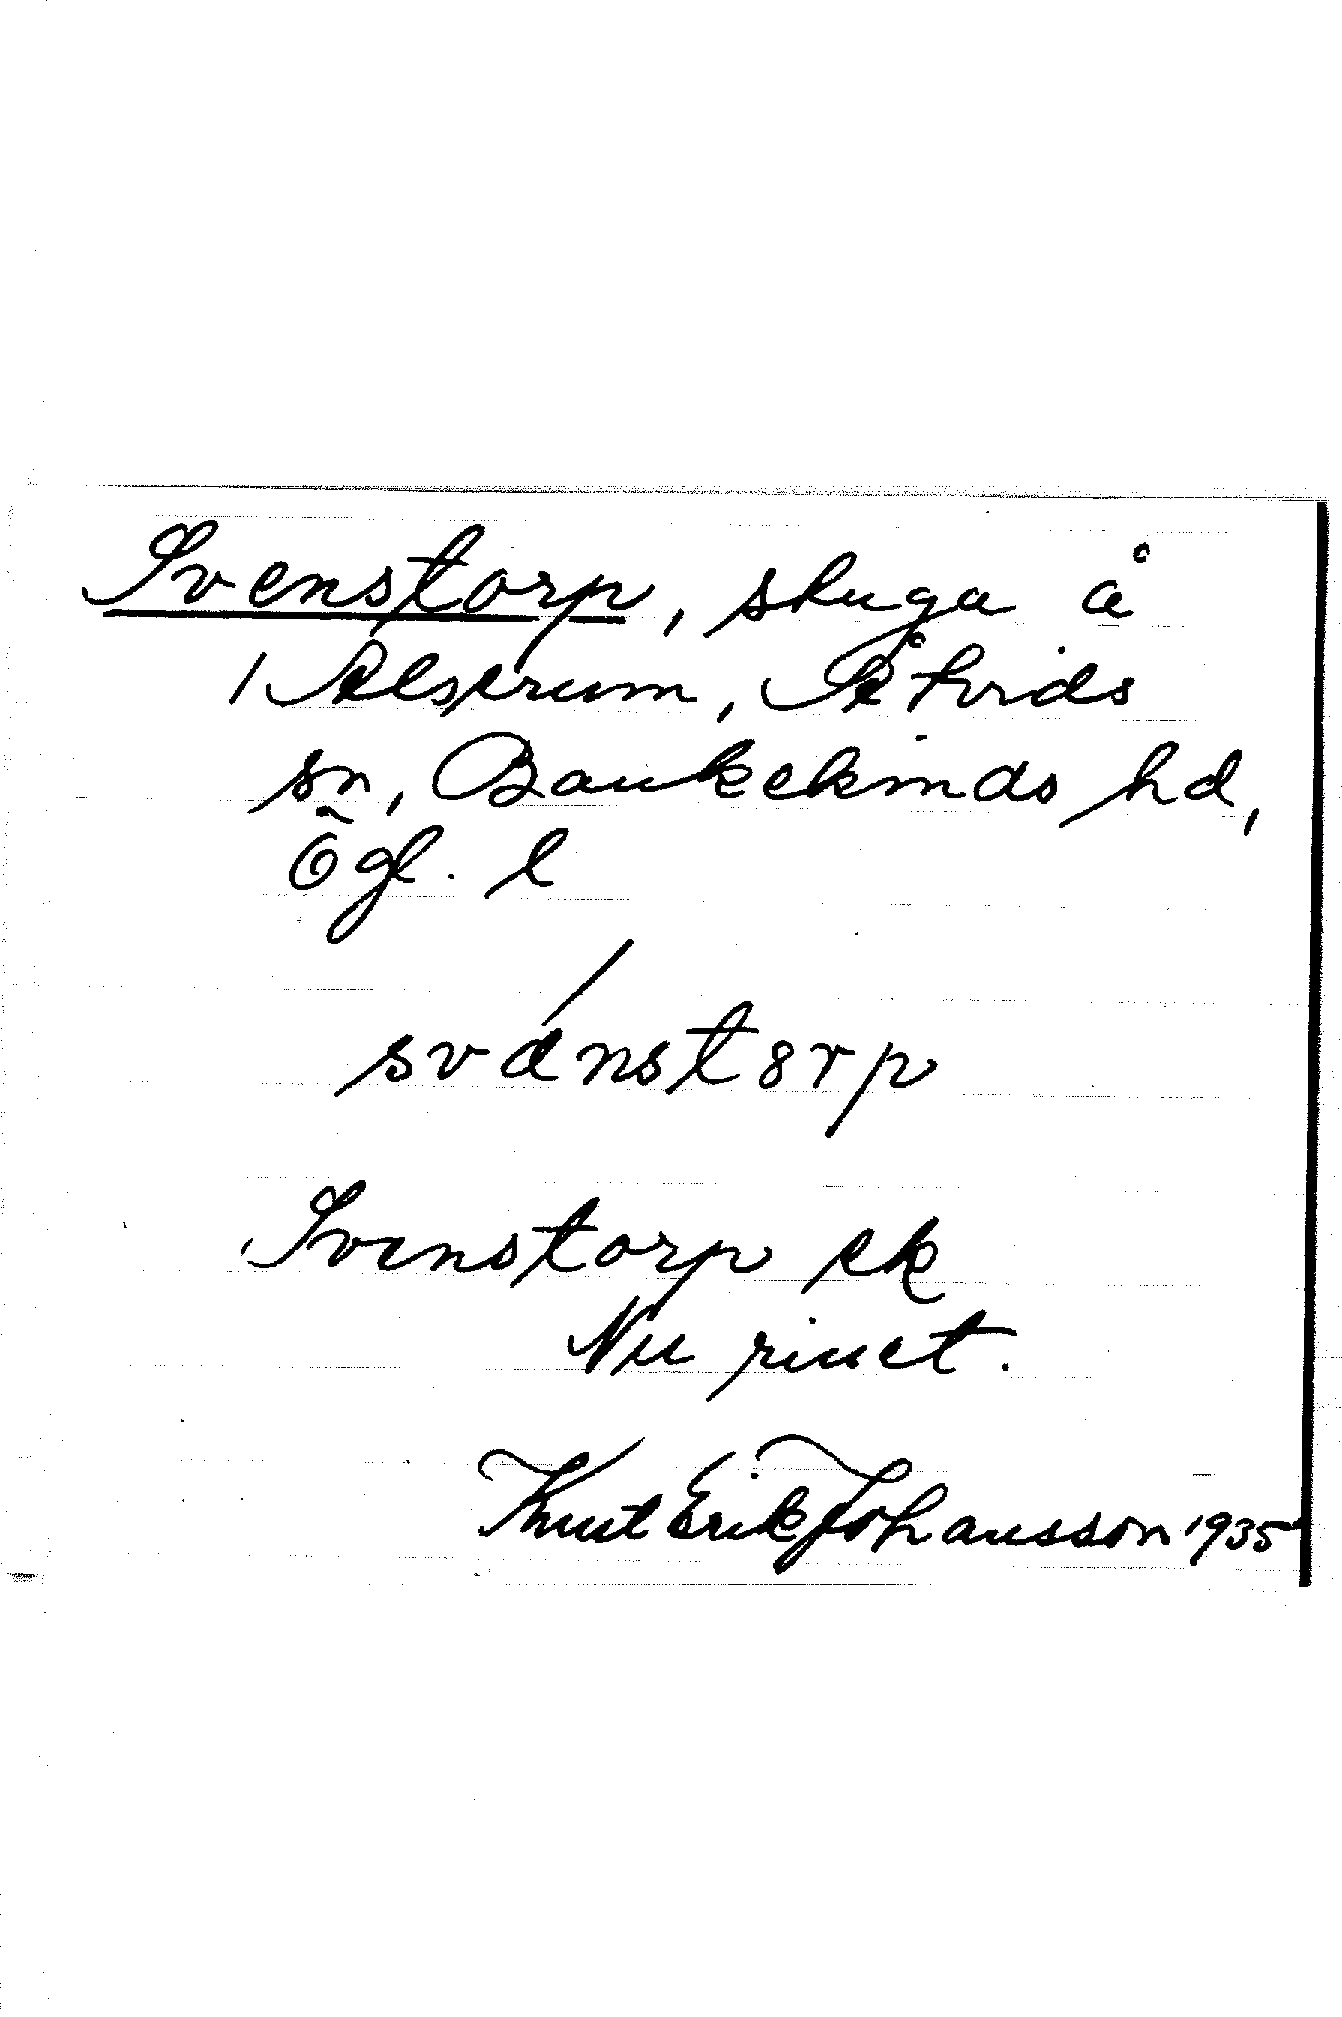 Svenstorp, stuga å
1 Alserum, Åtvids
sn, Bankekinds hd,
Ögl. l
svänstorp
Svenstorp ek
Nu rivet.
Knut Erik Johansson 1935